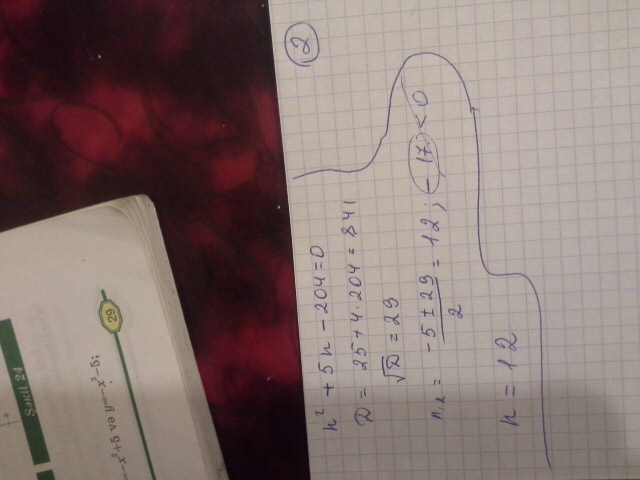 ②
n² + 5n - 204 = 0
D = 25 + 4·204 = 841
√D = 29
n₁,₂ = (-5 ± 29)/2 = 12; -17 < 0
n = 12
29
=-x²+5 və y=-x²-5;